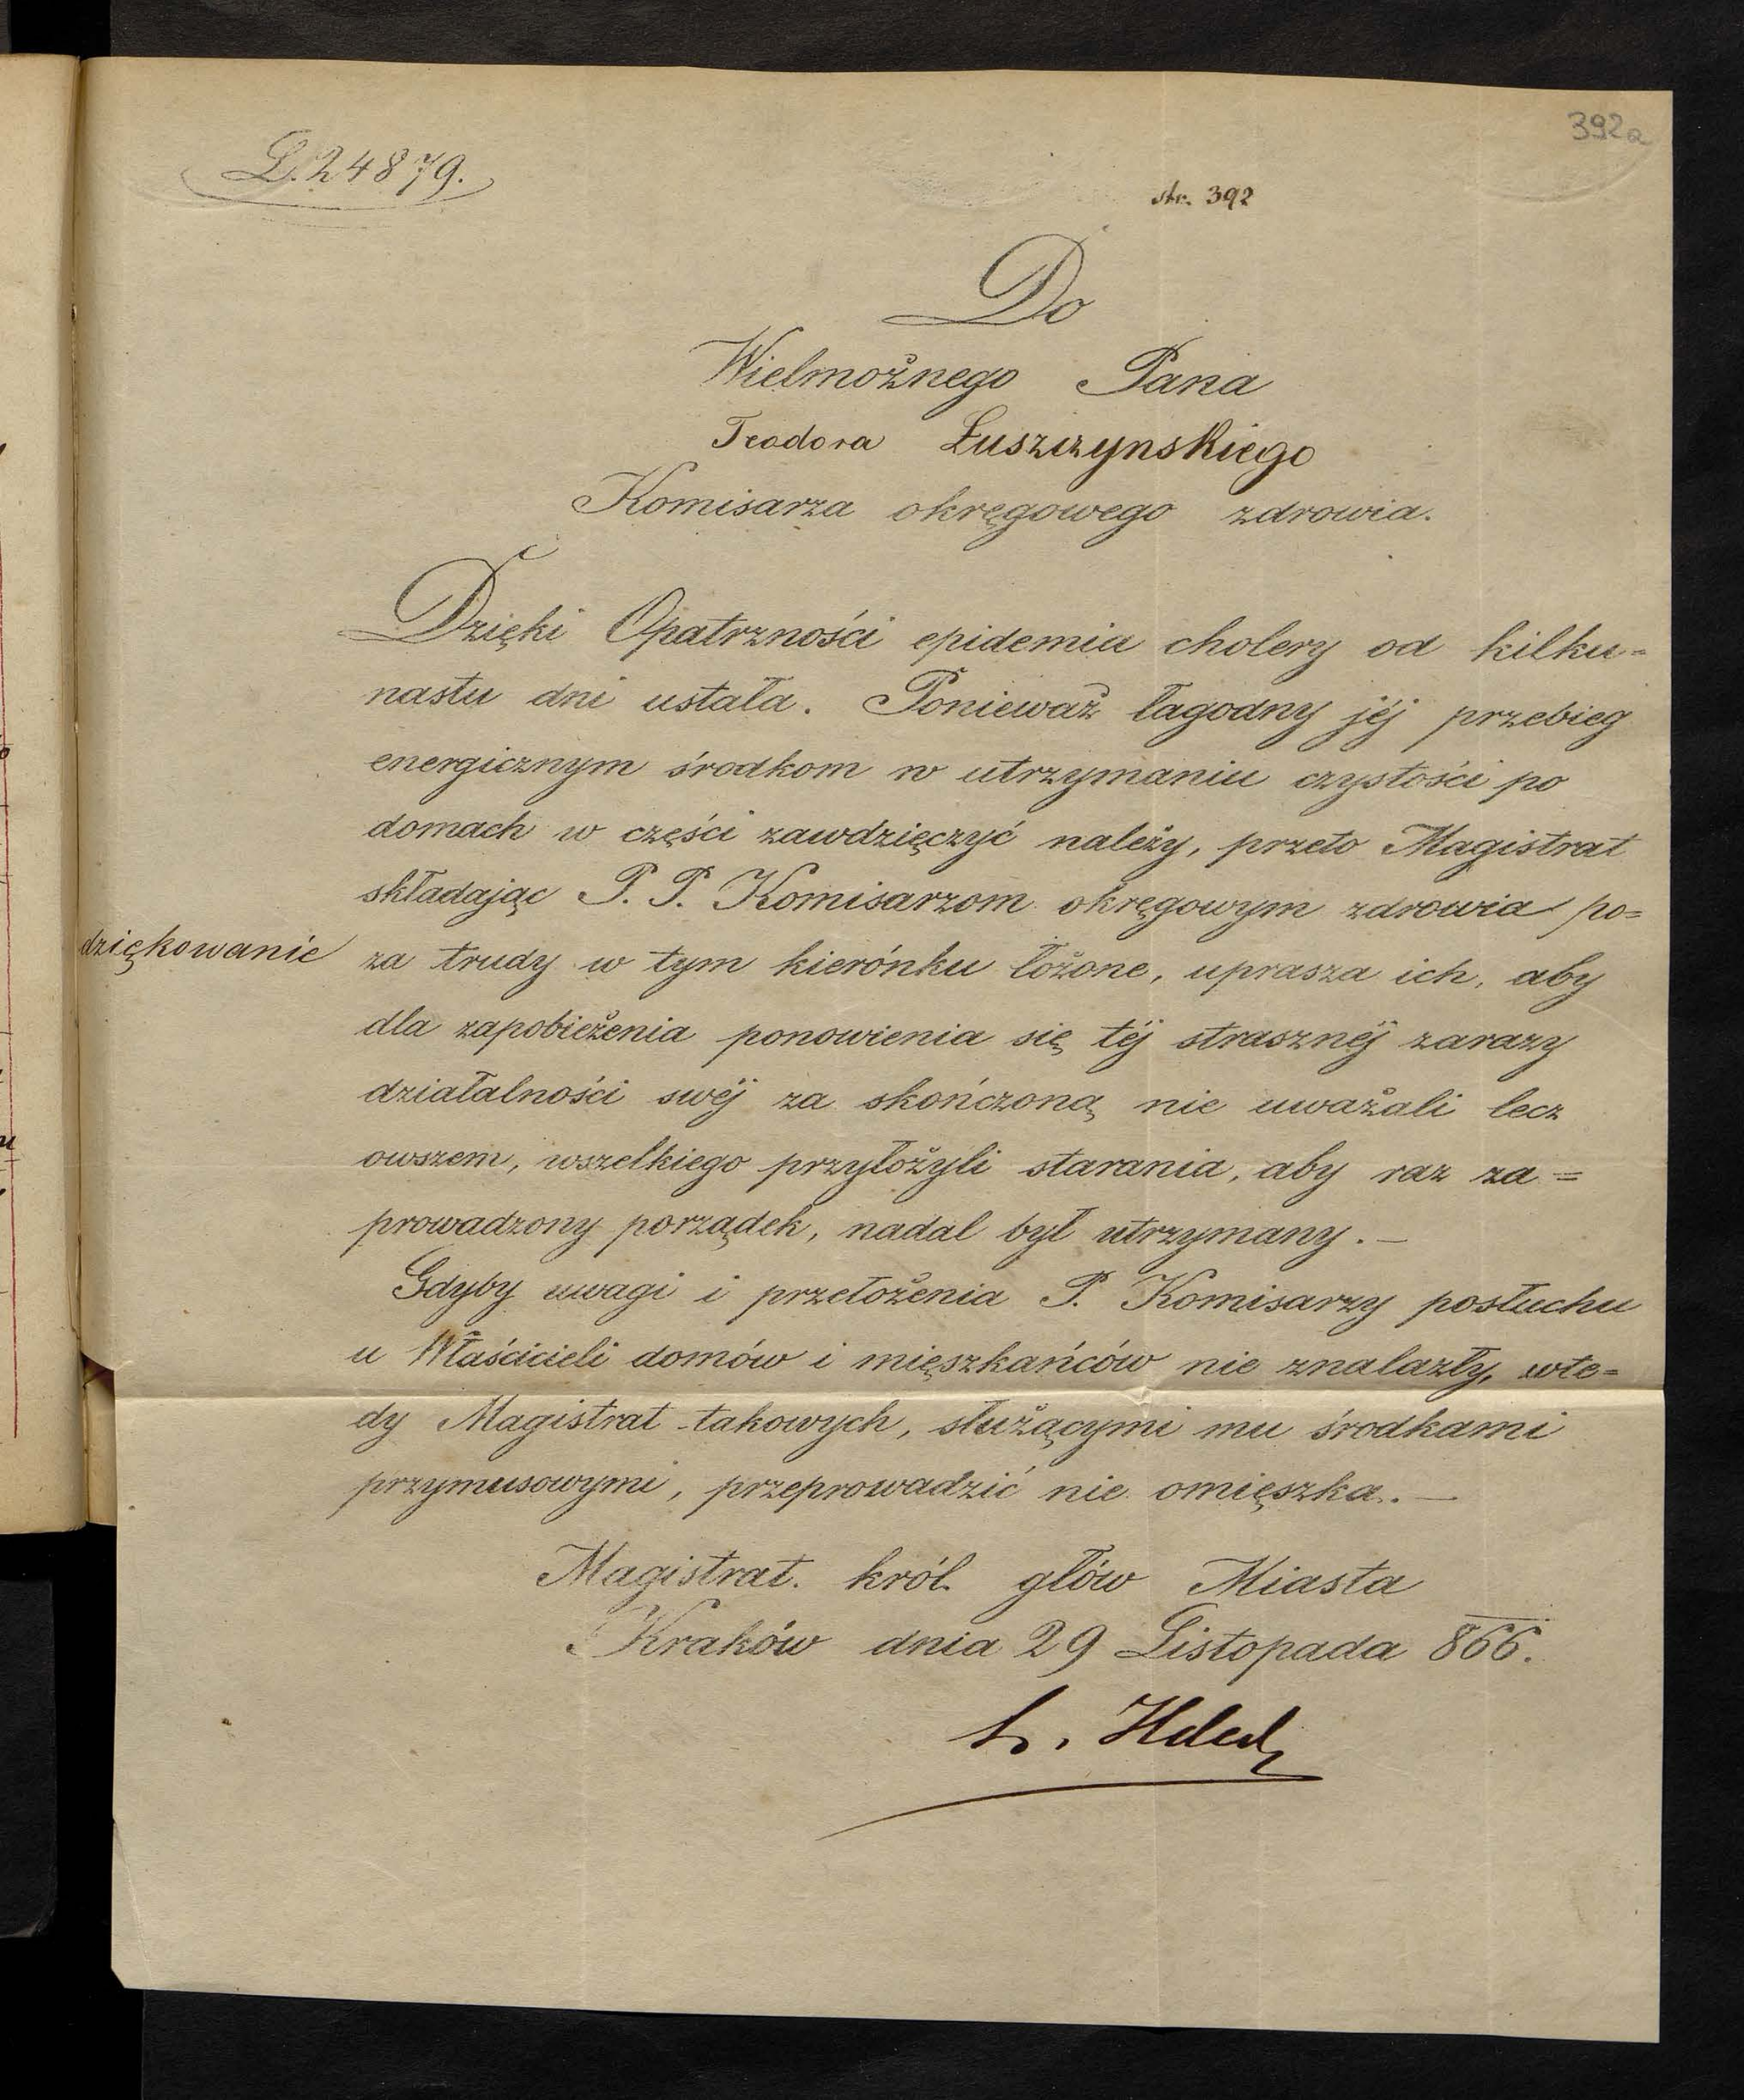 392a
L. 24879.
str. 392
Do
Wielmożnego Pana
Teodora Łuszczynskiego
Komisarza okręgowego zdrowia.
Dzięki Opatrzności epidemia cholery od kilku=
nastu dni ustała. Ponieważ łagodny jéj przebieg
energicznym środkom w utrzymaniu czystości po
domach w części zawdzięczyć należy, przeto Magistrat
składając P. P. Komisarzom okręgowym zdrowia po=
dziękowanie za trudy w tym kierónku łożone, uprasza ich, aby
dla zapobieżenia ponowienia się téj strasznéj zarazy
działalności swéj za skończoną nie uważali lecz
owszem, wszelkiego przyłożyli starania, aby raz za=
prowadzony porządek, nadal był utrzymany. —
Gdyby uwagi i przełożenia P. Komisarzy posłuchu
u Właścicieli domów i mięszkańców nie znalazły, wte=
dy Magistrat takowych, służącymi mu środkami
przymusowymi, przeprowadzić nie omięszka. —
Magistrat. król. głów Miasta
Kraków dnia 29 Listopada 866.